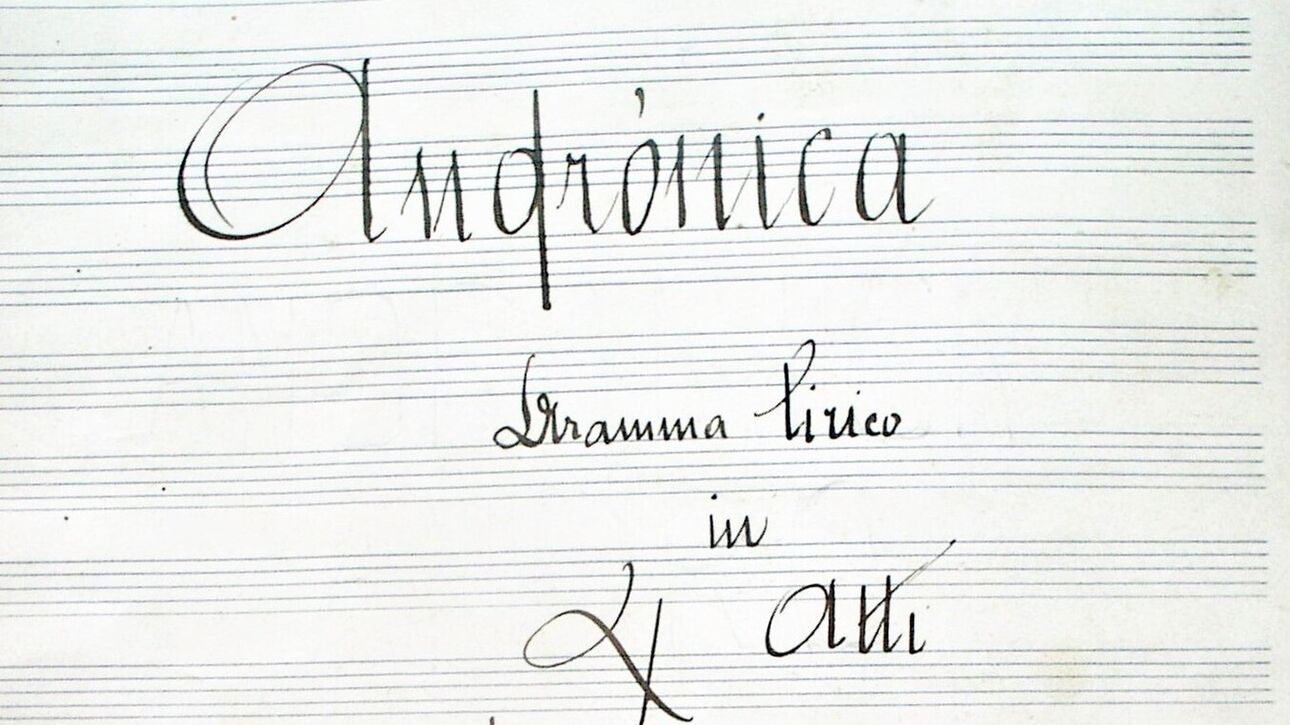 Andrónica
Dramma lirico
in
4 Atti